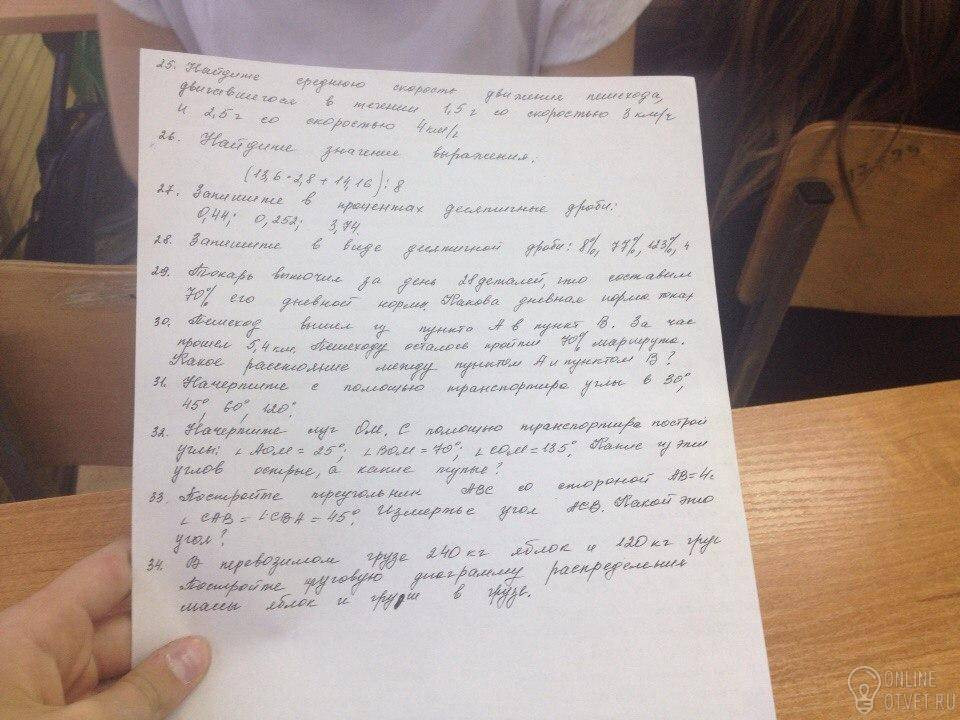 25. Найдите среднюю скорость движения пешехода,
двигавшегося в течении 1,5 г со скоростью 3 км/ч
и 2,5 г со скоростью 4 км/г
26. Найдите значение выражения.
(13,6 - 2,8 + 14,16) : 8
27. Запишите в процентах десятичные дроби:
0,44; 0,252; 3,74.
28. Запишите в виде десятичной дроби: 8%, 77%, 123%, 4
29. Токарь выточил за день 28 деталей, что составим
70% его дневной нормы. Какова дневная норма тока
30. Пешеход вышел из пункта А в пункт В. За час
прошел 5,4 км. Пешеходу осталось пройти 70% маршрута.
Какое расстояние между пунктом А и пунктом В?
31. Начертите с помощью транспортира углы в 30°,
45°, 60°, 120°.
32. Начертите луг ОМ. С помощью транспортира построй
углы: ∠АОМ = 25°; ∠ВОМ = 70°; ∠СОМ = 135°. Какие из эти
углов острые, а какие тупые?
33. Постройте треугольник АВС со стороной АВ=4
∠САВ = ∠СВА = 45°. Измерьте угол АСВ. Какой это
угол?
34. В перевозимом грузе 240 кг яблок и 120 кг груш
Постройте круговую диаграмму распределения
массы яблок и груш в грузе.
ONLINE
OTVET.RU